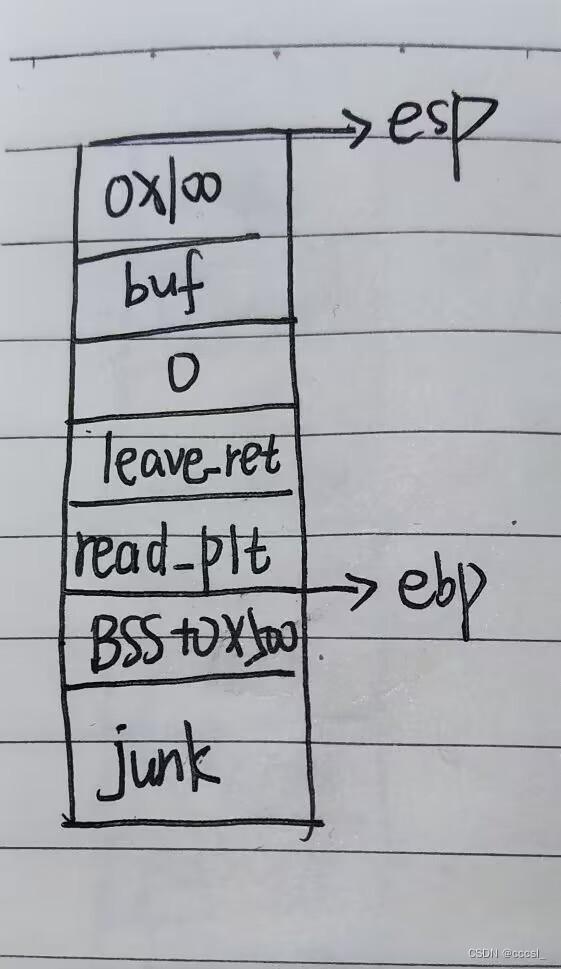 esp
0x100
buf
0
leave_ret
read_plt
ebp
BSS+0x500
junk
CSDN @cccsl_